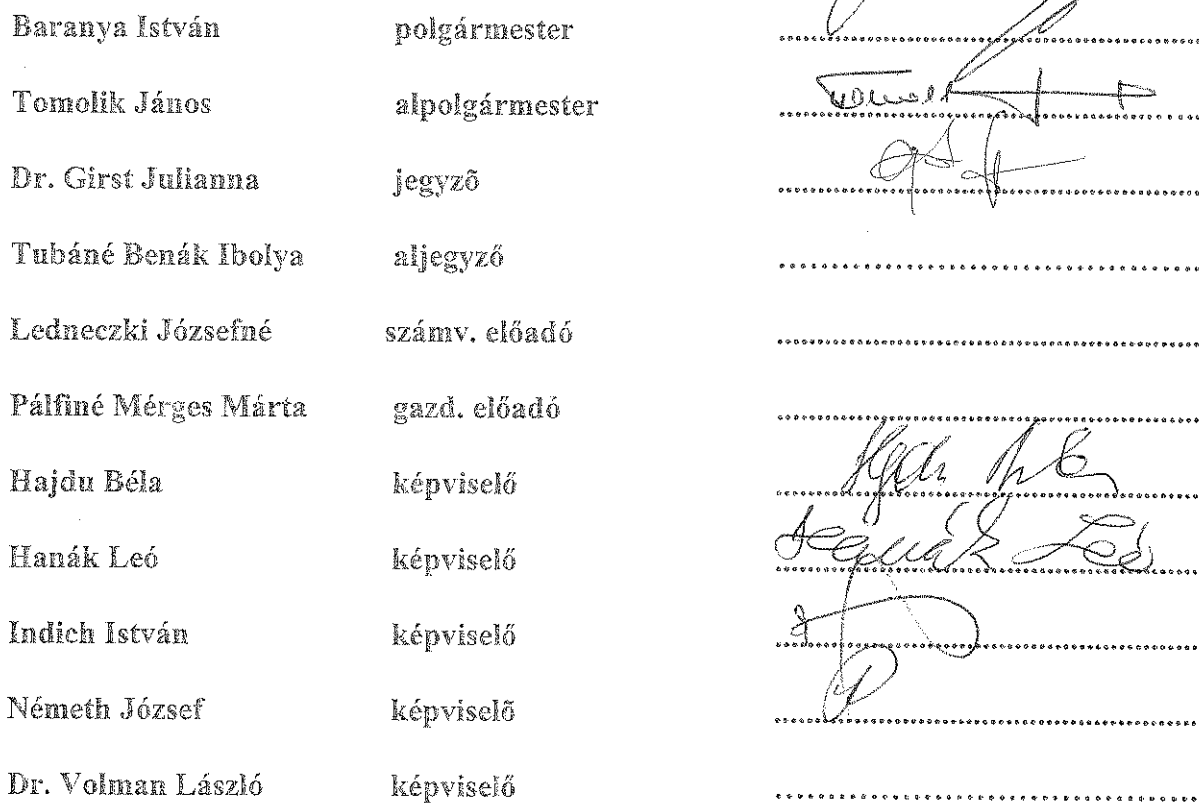 Baranya István polgármester
Tomolik János alpolgármester
Dr. Girst Julianna jegyzõ
Tubáné Benák Ibolya aljegyző
Ledneczki Józsefné számv. előadó
Pálfiné Mérges Márta gazd. előadó
Hajdu Béla képviselő
Hanák Leó képviselő
Indich István képviselő
Németh József képviselõ
Dr. Volman László képviselő